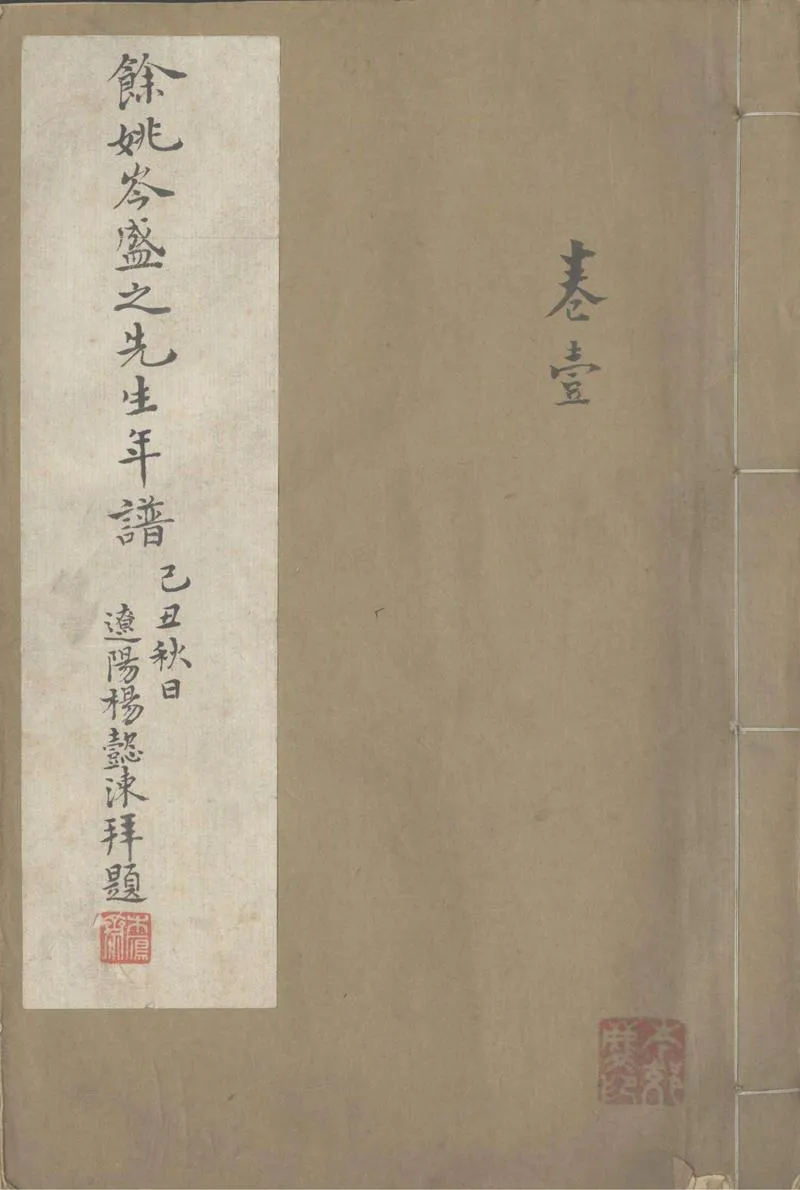 卷壹
餘姚岑盛之先生年譜
己丑秋日
遼陽楊懿涑拜題